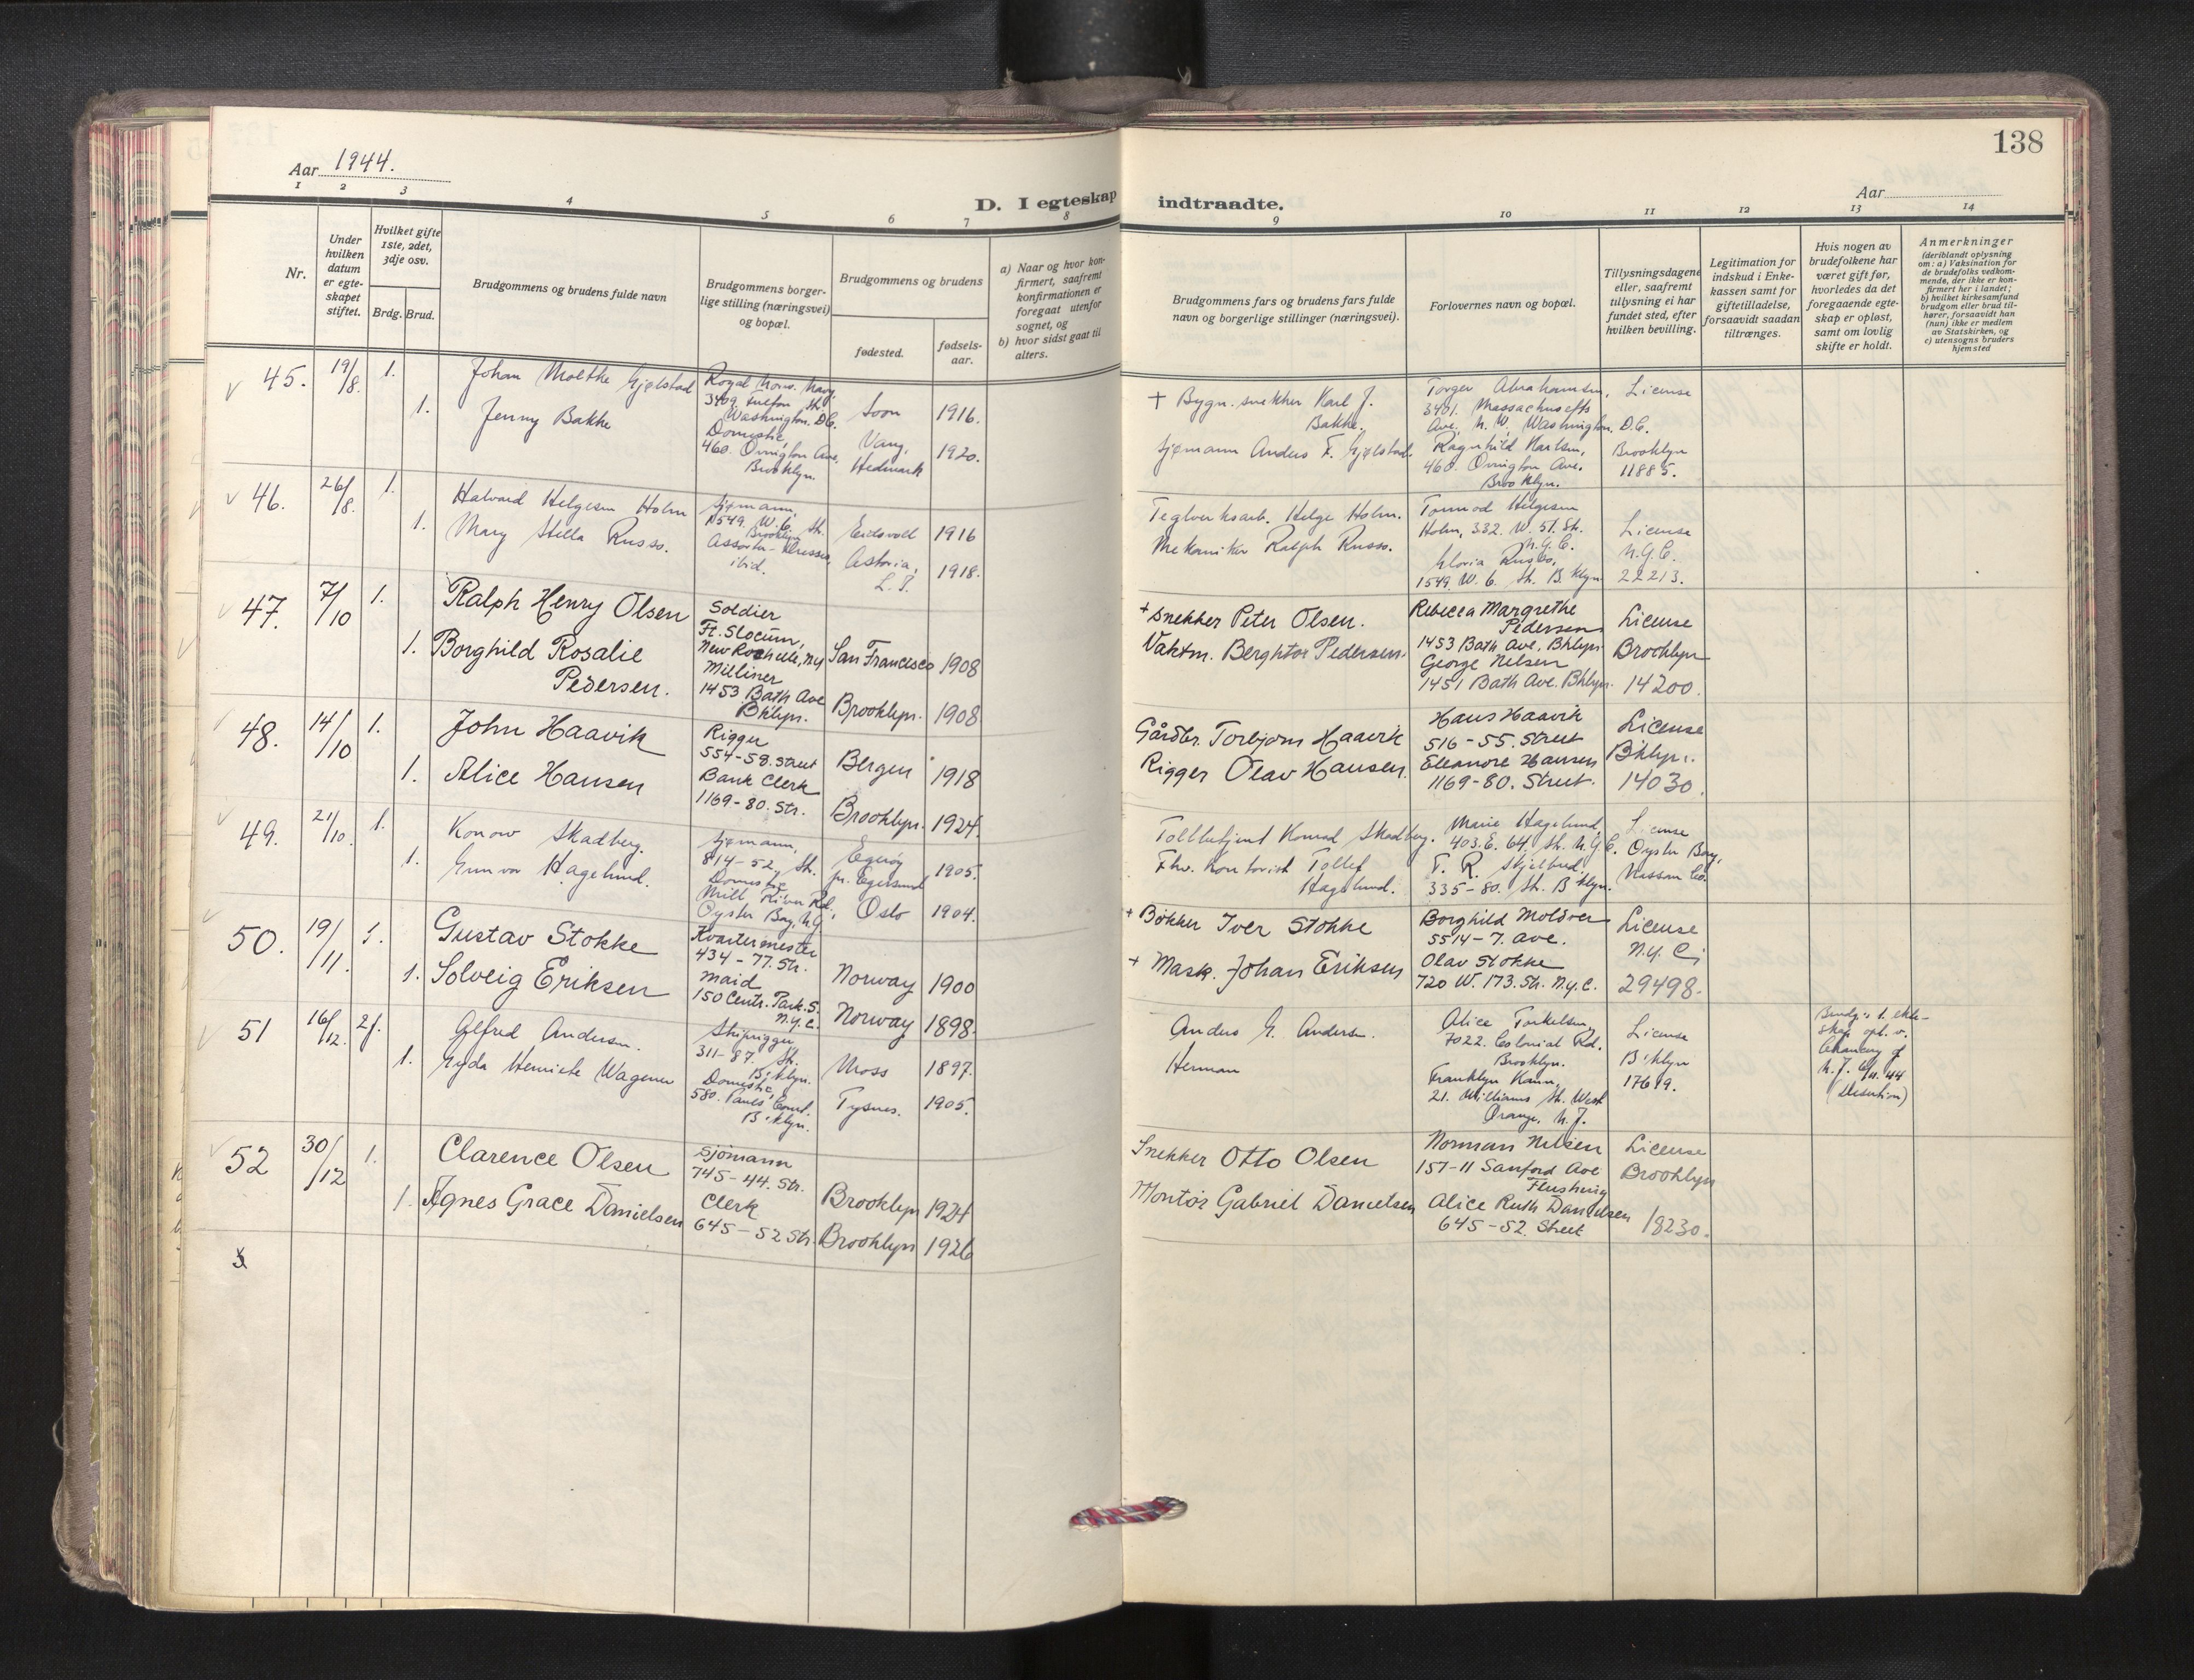 Aar 1944.
138
D. I egteskap indtraadte.
Aar
1 2 3 4 5 6 7 8 9 10 11 12 13 14
Nr.
Under hvilken datum er egteskapet stiftet.
Hvilket gifte 1ste, 2det, 3dje osv.
Brdg. Brud.
Brudgommens og brudens fulde navn
Brudgommens borgerlige stilling (næringsvei) og bopæl.
Brudgommens og brudens
fødested.
fødselsaar.
a) Naar og hvor konfirmert, saafremt konfirmationen er foregaat utenfor sognet, og
b) hvor sidst gaat til alters.
Brudgommens fars og brudens fars fulde navn og borgerlige stillinger (næringsvei).
Forlovernes navn og bopæl.
Tillysningsdagene eller, saafremt tillysning ei har fundet sted, efter hvilken bevilling.
Legitimation for indskud i Enkekassen samt for giftetilladelse, forsaavidt saadan tiltrænges.
Hvis nogen av brudefolkene har været gift før, hvorledes da det foregaaende egteskap er opløst, samt om lovlig skifte er holdt.
Anmerkninger (deriblandt oplysning om: a) Vaksination for de brudefolks vedkommende, der ikke er konfirmert her i landet; b) hvilket kirkesamfund brudgom eller brud tilhører, forsaavidt han (hun) ikke er medlem av Statskirken, og c) utensogns bruders hjemsted
45. 19/8. 1.
Johan Molthe Gjølstad
1. Jenny Bakke
Royal Norw. Navy,
3409 Fulton St.
Washington. D.C.
Domestic,
460. Ovington Ave,
Brooklyn.
Soon 1916.
Vang, Hedmark 1920.
+ Bygn. snekker Karl J. Bakke.
Sjømann Anders F. Gjølstad.
Torger Abrahamsen,
3401. Massachusetts
Ave. N. W, Washington, D.C.
Ragnhild Karlsen,
460 Ovington Ave.
Brooklyn.
License
Brooklyn
11885.
46. 26/8. 1.
Halvard Helgesen Holm
1. Mary Stella Russo.
Sjømann,
1549. W. 6. St.
Brooklyn
ibid.
Eidsvoll 1916
Astoria, L. I. 1918.
Teglverksarb. Helge Holm.
Mekaniker Ralph Russo.
Tormod Helgesen
Holm, 332. W. 51. St.
N.Y.C.
Gloria Russo,
1549. W. 6. St. B'klyn
License
N.Y.C.
22213.
47. 7/10 1.
Ralph Henry Olsen
1. Borghild Rosalie
Pedersen.
Soldier
Ft. Slocum,
New Rochelle, NY
Milliner
1453 Bath Ave
Bklyn.
San Francisco 1908
Brooklyn. 1908
+ Snekker Peter Olsen.
Vaktm. Berghtor Pedersen.
Rebecca Margrethe
Pedersen
1453 Bath Ave. Bklyn.
George Nelsen
1451 Bath Ave. Bklyn.
License
Brooklyn
14200.
48. 14/10 1.
John Haavik
1. Alice Hansen
Rigger
554-58. Street
Bank Clerk
1169-80. Str.
Bergen 1918
Brooklyn. 1924
Gårdbr. Torbjørn Haavik
Rigger Olav Hansen.
Hans Haavik
516-55. Street
Eleanore Hansen
1169-80. Street.
License
B'klyn.
14030.
49. 21/10. 1.
Konow Skadberg.
1. Gunvor Hagelund.
Sjømann,
814-52, St.
Domestic
Mill River Rd.
Oyster Bay, N.Y
Egerøy pr. Egersund 1905.
Oslo 1904.
Tollbetjent Konrad Skadberg.
Fhv. kontorist Tollef
Hagelund.
Marie Hagelund,
403. E. 64. St. N.Y.C.
T. R. Skjelbred,
335-80. St. B'klyn.
License
Oyster Bay,
Nassau Co.
50. 19/11. 1.
Gustav Stokke
1. Solveig Eriksen
Kvartermester
434-77. Str.
Maid
150 Centr. Park. S.
N.Y.C.
Norway 1900
Norway 1898.
+ Bøkker Iver Stokke
+ Mask. Johan Eriksen
Borghild Moldver
5514-7. Ave.
Olav Stokke
720 W. 173. Str. N.Y.C.
License
N.Y.C;
29498.
51 16/12. 2f.
Alfred Andersen.
1. Gyda Henriete Wagener
Skiprigger
311-87. St.
B'klyn.
Domestic,
580. Court.
B'klyn.
Moss 1897.
Tysnes. 1905.
Anders G. Andersen.
Herman
Alice Torkelsen,
7022. Colonial Rd.
Brooklyn.
Franklyn Kann,
21. Williams St. West
Orange, N.J.
License
B'klyn
17619.
Brudg's 1. ekteskap opl. v.
Chancery of
N.J. 44
(Desertion)
52 30/12 1.
Clarence Olsen
1. Agnes Grace Danielsen
Sjömann
745-44. Str.
Clerk
645-52 Str.
Brooklyn 1924
Brooklyn 1926
Snekker Otto Olsen
Montör Gabriel Danielsen
Norman Nelsen
157-11 Sanford Ave
Flushing
Alice Ruth Danielsen
645-52. Street
License
Brooklyn
18230.